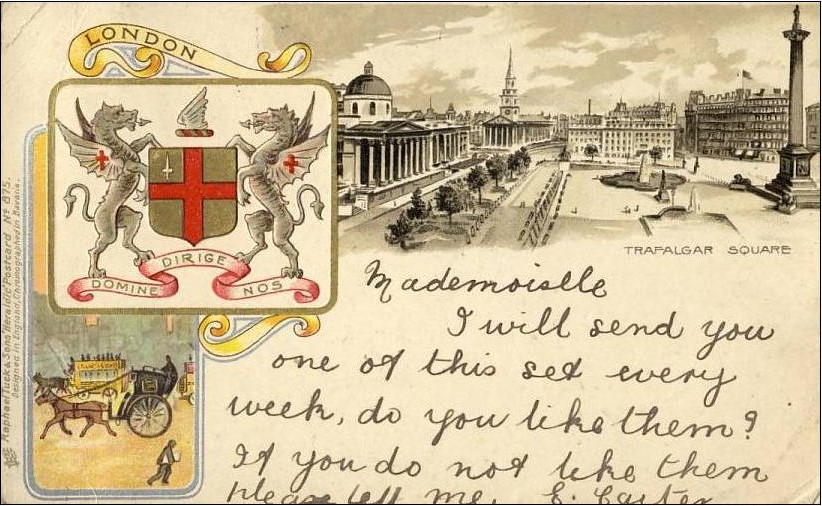 LONDON
DOMINE DIRIGE NOS
TRAFALGAR SQUARE
Raphael Tuck & Sons "Heraldic" Postcard Nº 875.
Designed in England, Chromographed in Bavaria.
Mademoiselle
I will send you
one of this set every
week, do you like them?
If you do not like them
please tell me. E. Carter